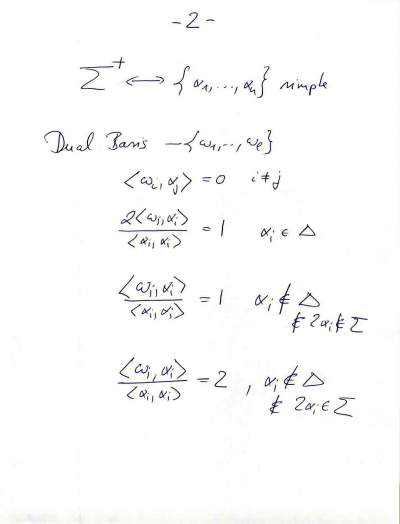 -2-
Σ⁺ ⟷ {α₁,...,αₙ} simple
Dual Basis — {ω₁,..,ωₑ}
⟨ωᵢ, αⱼ⟩ = 0 i≠j
2⟨ωᵢ,αᵢ⟩ / ⟨αᵢ,αᵢ⟩ = 1 αᵢ ∈ Δ
⟨ωᵢ,αᵢ⟩ / ⟨αᵢ,αᵢ⟩ = 1 αᵢ ∉ Δ
& 2αᵢ ∉ Σ
⟨ωᵢ,αᵢ⟩ / ⟨αᵢ,αᵢ⟩ = 2 , αᵢ ∉ Δ
& 2αᵢ ∈ Σ